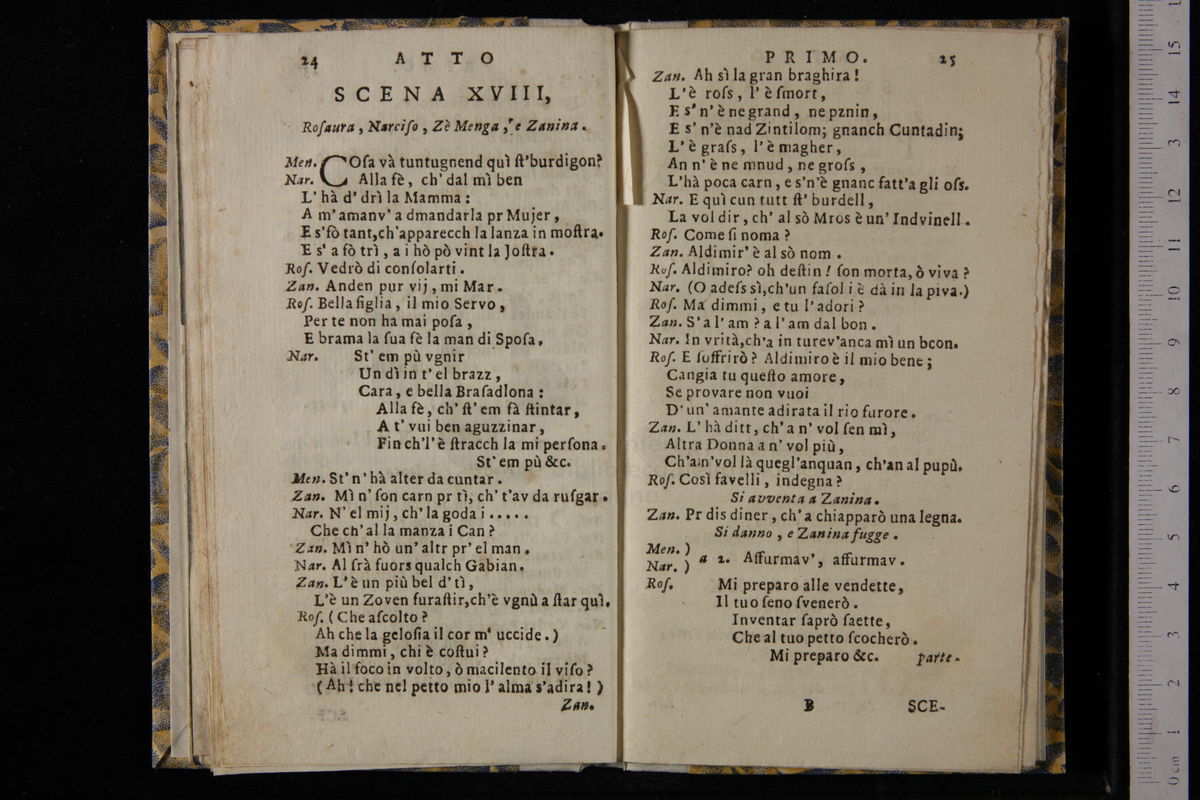 24 ATTO
SCENA XVIII,
Roſaura, Narciſo, Zè Menga, e Zanina.
Men. COſa và tuntugnend quì ſt'burdigon?
Nar. Alla fè, ch' dal mì ben
L' hà d' drì la Mamma:
A m' amanv' a dmandarla pr Mujer,
E s'fò tant,ch'apparecch la lanza in moſtra.
E s' a fò trì, a i hò pò vint la Joſtra.
Roſ. Vedrò di conſolarti.
Zan. Anden pur vij, mi Mar.
Roſ. Bella figlia, il mio Servo,
Per te non ha mai poſa,
E brama la ſua fè la man di Spoſa.
Nar. St' em pù vgnir
Un dì in t' el brazz,
Cara, e bella Braſadlona:
Alla fè, ch' ſt' em fà ſtintar,
A t' vui ben aguzzinar,
Fin ch'l' è ſtracch la mi perſona.
St' em pù &c.
Men. St' n' hà alter da cuntar.
Zan. Mì n' ſon carn pr tì, ch' t'av da ruſgar.
Nar. N' el mij, ch' la goda i . . . . .
Che ch' al la manza i Can?
Zan. Mì n' hò un' altr pr' el man.
Nar. Al ſrà fuors qualch Gabian.
Zan. L' è un più bel d' tì,
L'è un Zoven furaſtir,ch'è vgnù a ſtar quì.
Roſ. (Che aſcolto?
Ah che la geloſia il cor m' uccide.)
Ma dimmi, chi è coſtui?
Hà il foco in volto, ò macilento il viſo?
(Ah! che nel petto mio l' alma s'adira!)
Zan.
PRIMO. 25
Zan. Ah sì la gran braghira!
L' è roſs, l' è ſmort,
E s' n' è ne grand, ne pznin,
E s' n'è nad Zintilom; gnanch Cuntadin;
L' è graſs, l' è magher,
An n' è ne mnud, ne groſs,
L'hà poca carn, e s'n'è gnanc fatt'a gli oſs.
Nar. E quì cun tutt ſt' burdell,
La vol dir, ch' al sò Mros è un' Indvinell.
Roſ. Come ſi noma?
Zan. Aldimir' è al sò nom.
Roſ. Aldimiro? oh deſtin! ſon morta, ò viva?
Nar. (O adeſs sì,ch'un faſol i è dà in la piva.)
Roſ. Ma dimmi, e tu l' adori?
Zan. S' a l' am? a l' am dal bon.
Nar. In vrità,ch'a in turev'anca mì un bcon.
Roſ. E ſoffrirò? Aldimiro è il mio bene;
Cangia tu queſto amore,
Se provare non vuoi
D' un' amante adirata il rio furore.
Zan. L' hà ditt, ch' a n' vol ſen mì,
Altra Donna a n' vol più,
Ch'a n'vol là quegl'anquan, ch'an al pupù.
Roſ. Così favelli, indegna?
Si avventa a Zanina.
Zan. Pr dis diner, ch' a chiapparò una legna.
Si danno, e Zanina fugge.
Men. )
Nar. ) a 2. Affurmav', affurmav.
Roſ. Mi preparo alle vendette,
Il tuo ſeno ſvenerò.
Inventar ſaprò ſaette,
Che al tuo petto ſcocherò.
Mi preparo &c. parte.
B SCE-
0 cm 1 2 3 4 5 6 7 8 9 10 11 12 13 14 15